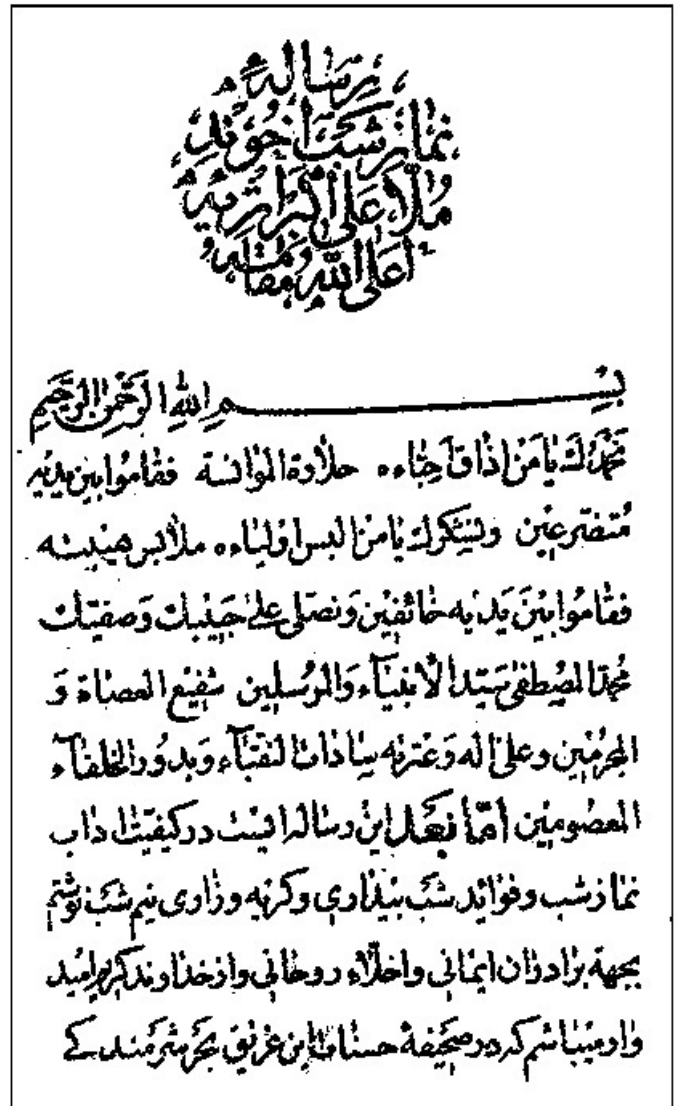 رساله
نماز شب آخوند
ملا علی اکبر اژیه
اعلی الله مقامه
بسم الله الرحمن الرحیم
نحمدك یا من اذاق احباءه حلاوة الموانسة فقاموا بین یدیه
متضرعین ونشکرك یا من البس اولیاءه ملابس هیبته
فقاموا بین یدیه خائفین ونصلی علی حبیبك وصفیك
محمد المصطفی سید الانبیاء والمرسلین شفیع العصاة و
المجرمین وعلی اله وعترته سادات النقباء وبدور الخلفاء
المعصومین اما بعد این رساله ایست در کیفیت اداب
نماز شب وفوائد شب بیداری وگریه وزاری نیم شب نوشتم
بجهة برادران ایمانی واخلاء روحانی واز خداوند کریم امید
وار میباشم که در صحیفة حسنات این غریق بحر شرمندکے